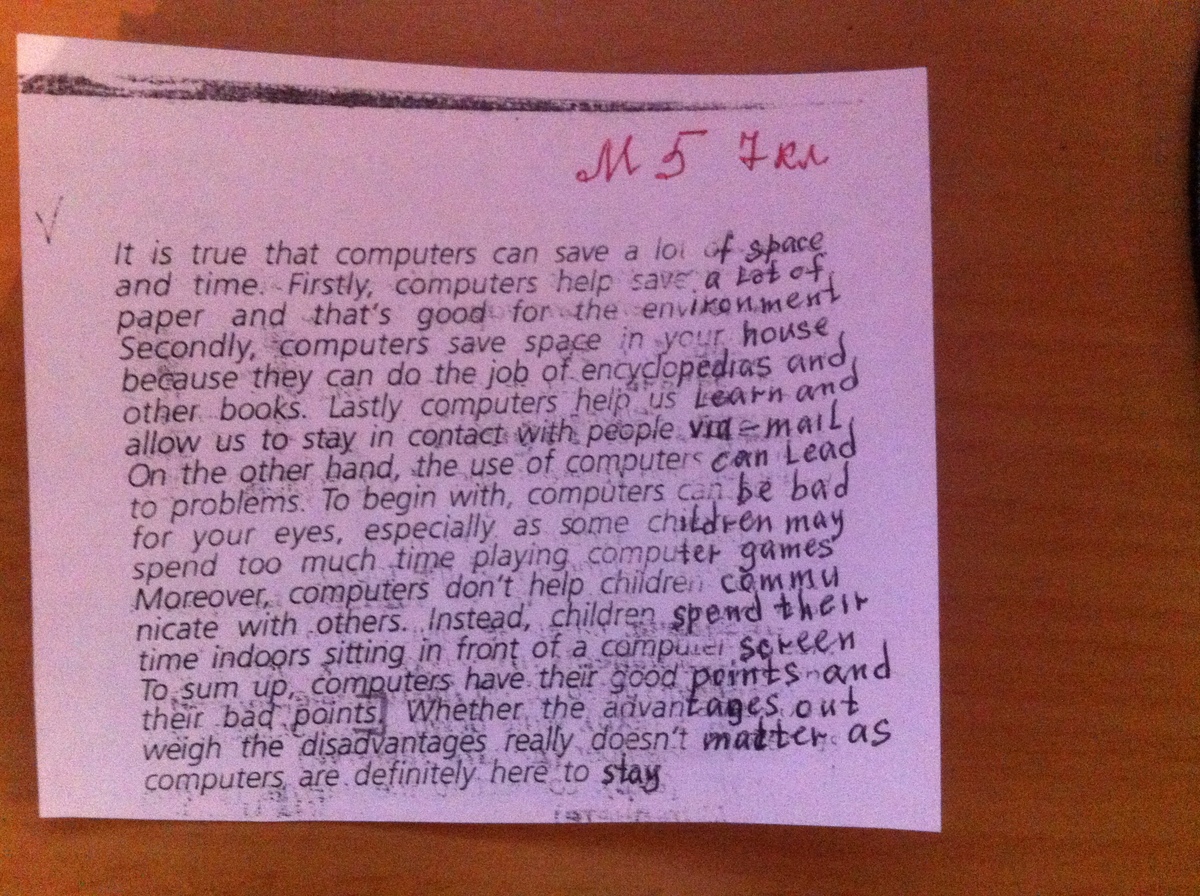 М 5 7 кл
It is true that computers can save a lot of space
and time. Firstly, computers help save a lot of
paper and that's good for the environment
Secondly, computers save space in your house
because they can do the job of encyclopedias and
other books. Lastly computers help us Learn and
allow us to stay in contact with people via e-mail
On the other hand, the use of computers can Lead
to problems. To begin with, computers can be bad
for your eyes, especially as some children may
spend too much time playing computer games
Moreover, computers don't help children commu
nicate with others. Instead, children spend their
time indoors sitting in front of a computer screen
To sum up, computers have their good points and
their bad points. Whether the advantages out
weigh the disadvantages really doesn't matter as
computers are definitely here to stay